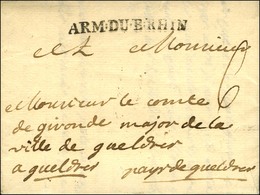 ARM.DU.E-RHIN
A Monsieur
6
Monsieur le comte
de gironde major de la
ville de gueldres
a gueldres pays de gueldres